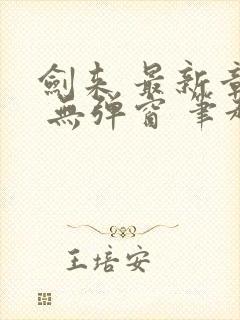 劍来 最新章
無弹窗 筆
王培安